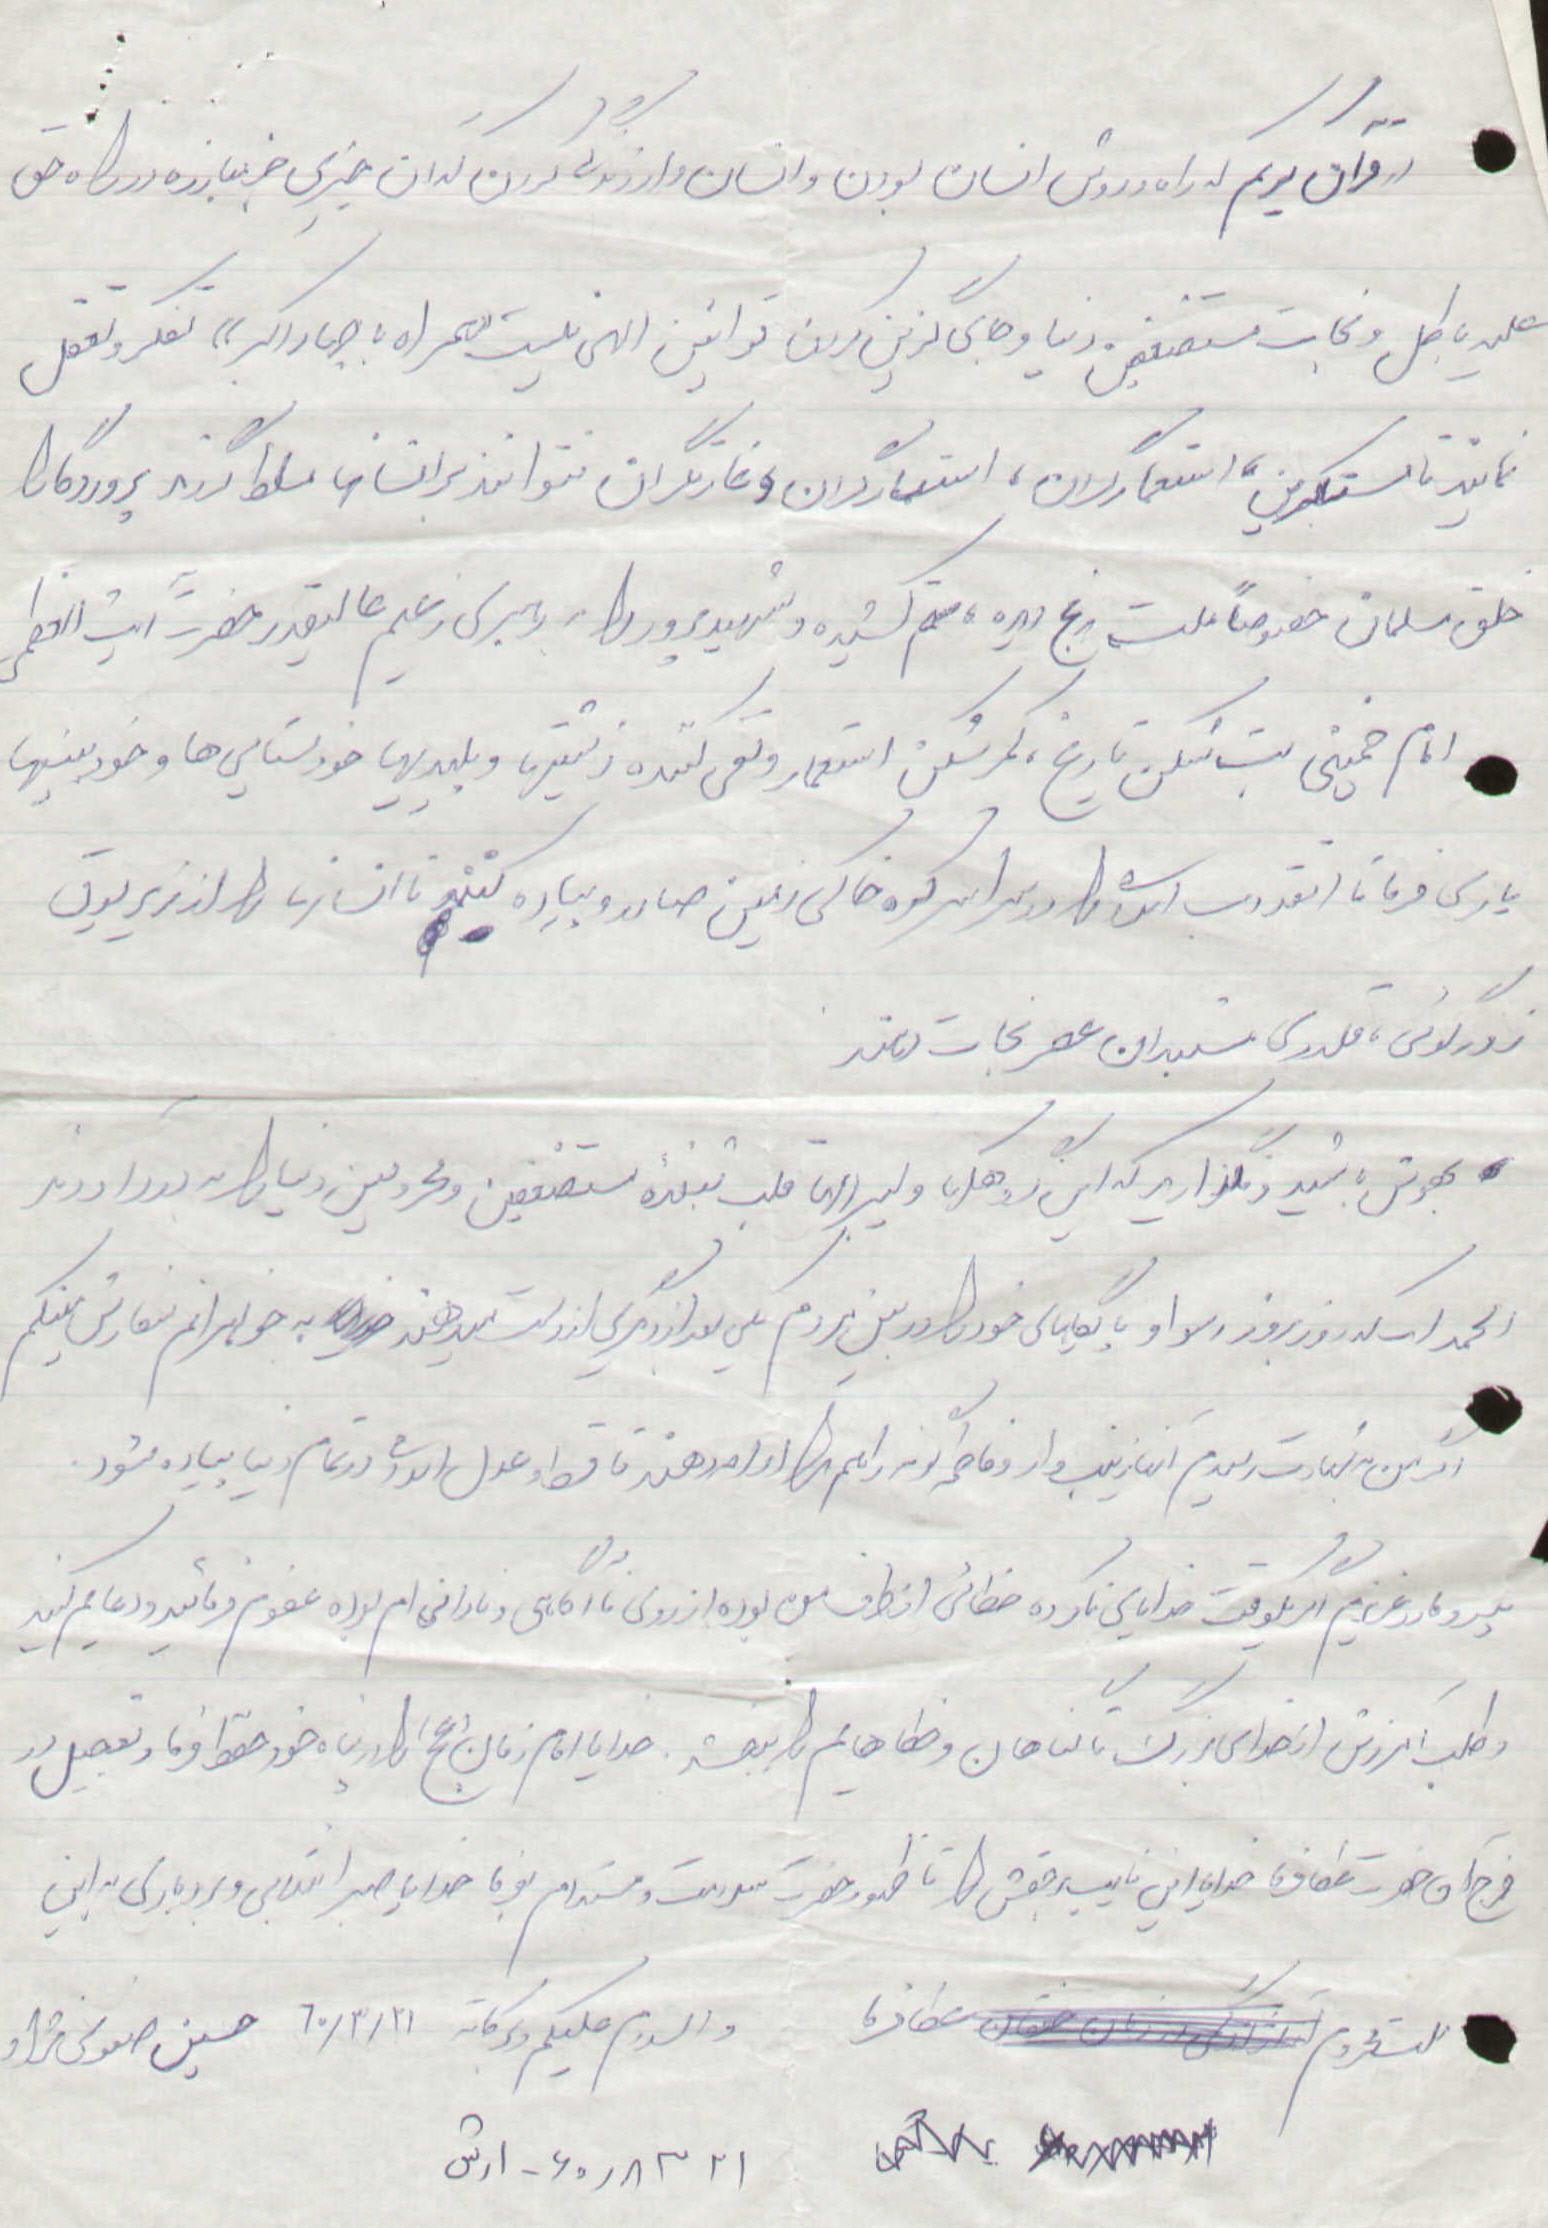 در قرآن کریم که راه و روش انسان بودن و انسان وار زندگی کردن که آن چیزی جز مبارزه در راه حق
علیه باطل و نجات مستضعفین دنیا و جایگزین کردن قوانین الهی نیست همراه با جهاد اکبر» تفکر و تعقل
نمائید تا مستکبرین، استعمارگران، استثمارگران و غارتگران نتوانند بر انسانها مسلط گردند پروردگارا
خلق مسلمان خصوصاً ملت رنج دیده، ستم کشیده و شهید پرور را به رهبری زعیم عالیقدر حضرت آیت العظمی
امام خمینی بت شکن تاریخ، کمرشکن استعمار و نفی کننده زشتیها و پلیدیها خودستایی ها و خودبینیها
یاری فرما تا انقلاب اسلامی را در سراسر کره خاکی زمین صادر و پیاده کنند تا انسانها را از زیر یوق
زورگوئی، قلدری مستبدان عصر نجات دهند
بهوش باشید و نگذارید که این گروهکها و لیبرالها قلب تپندهٔ مستضعفین و محرومین دنیا را به درد آورند
الحمداله که روز بروز رسوا و پایگاههای خود را در بین مردم یکی بعد از دیگری از دست میدهند به خواهرانم سفارش میکنم
اگر من به شهادت رسیدم آنها زینب وار و فاطمه گونه راهم را ادامه دهند تا قسط و عدل اسلامی در تمام دنیا پیاده شود.
پدر و مادر عزیزم اگر یکوقت خدایی ناکرده خطائی از طرف من بوده از روی ناآگاهی و نادانی ام بوده عفوم فرمائید و دعایم کنید
و طلب آمرزش از خدای بزرگ تا گناهان و خطاهایم را ببخشد. خدایا امام زمان (عج) را در پناه خود حفظ فرما و تعجیل در
فرج آن حضرت عطا فرما خدایا این نایب برحقش را تا ظهور حضرت سلامت و مستدام بفرما خدایا صبر انقلابی و بردباری به این
ملت محروم عطا فرما والسلام علیکم و برکاته ۶۰/۳/۲۱ حسین